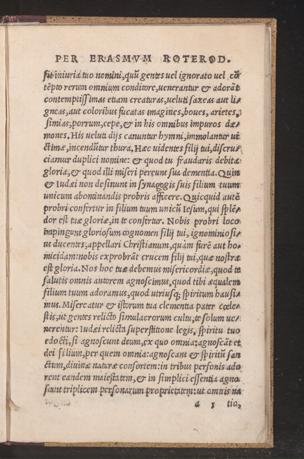 PER ERASMVM ROTEROD.
fit iniuria tuo nomini, quũ gentes uel ignorato uel cõ
tẽpto rerum omnium conditore, uenerantur & adorãt
contemptissimas etiam creaturas, ueluti saxeas aut li
gneas, aut coloribus fucatas imagines, boues, arietes,
simias, porrum, cepe, & in his omnibus impuros dæ
mones. His uelut dijs canuntur hymni, immolantur ui
ctimæ, incendũtur thura. Hæc uidentes filij tui, discru
ciamur duplici nomine: & quod tu fraudaris debita
gloria, & quod illi miseri pereunt sua dementia. Quin
& Iudæi non desinunt in synagogis suis filium tuum
unicum abominandis probris afficere. Quicquid autẽ
probri confertur in filium tuum unicũ Iesum, qui splẽ
dor est tuæ gloriæ, in te confertur. Nobis probri loco
impingunt gloriosum cognomen filij tui, ignominiosi
us ducentes, appellari Christianum, quàm furẽ aut ho
micidam: nobis exprobrãt crucem filij tui, quæ nostra
est gloria. Nos hoc tuæ debemus misericordiæ, quod te
salutis omnis autorem agnoscimus, quod tibi æqualem
filium tuum adoramus, quod utriusq; spiritum hausi
mus. Misereatur & istorum tua clementia pater cœle
stis, ut gentes relicto simulacrorum cultu, te solum ue
nerentur: Iudæi relicta superstitione legis, spiritu tuo
edocti, si agnoscunt deum, ex quo omnia: agnoscãt et
dei filium, per quem omnia: agnoscant & spiritũ san
ctum, diuinæ naturæ consortem: in tribus personis ado
rent eandem maiestatem, & in simplici essentia agno
scant triplicem personarum proprietatem: ut omnis na
a 3 tio,